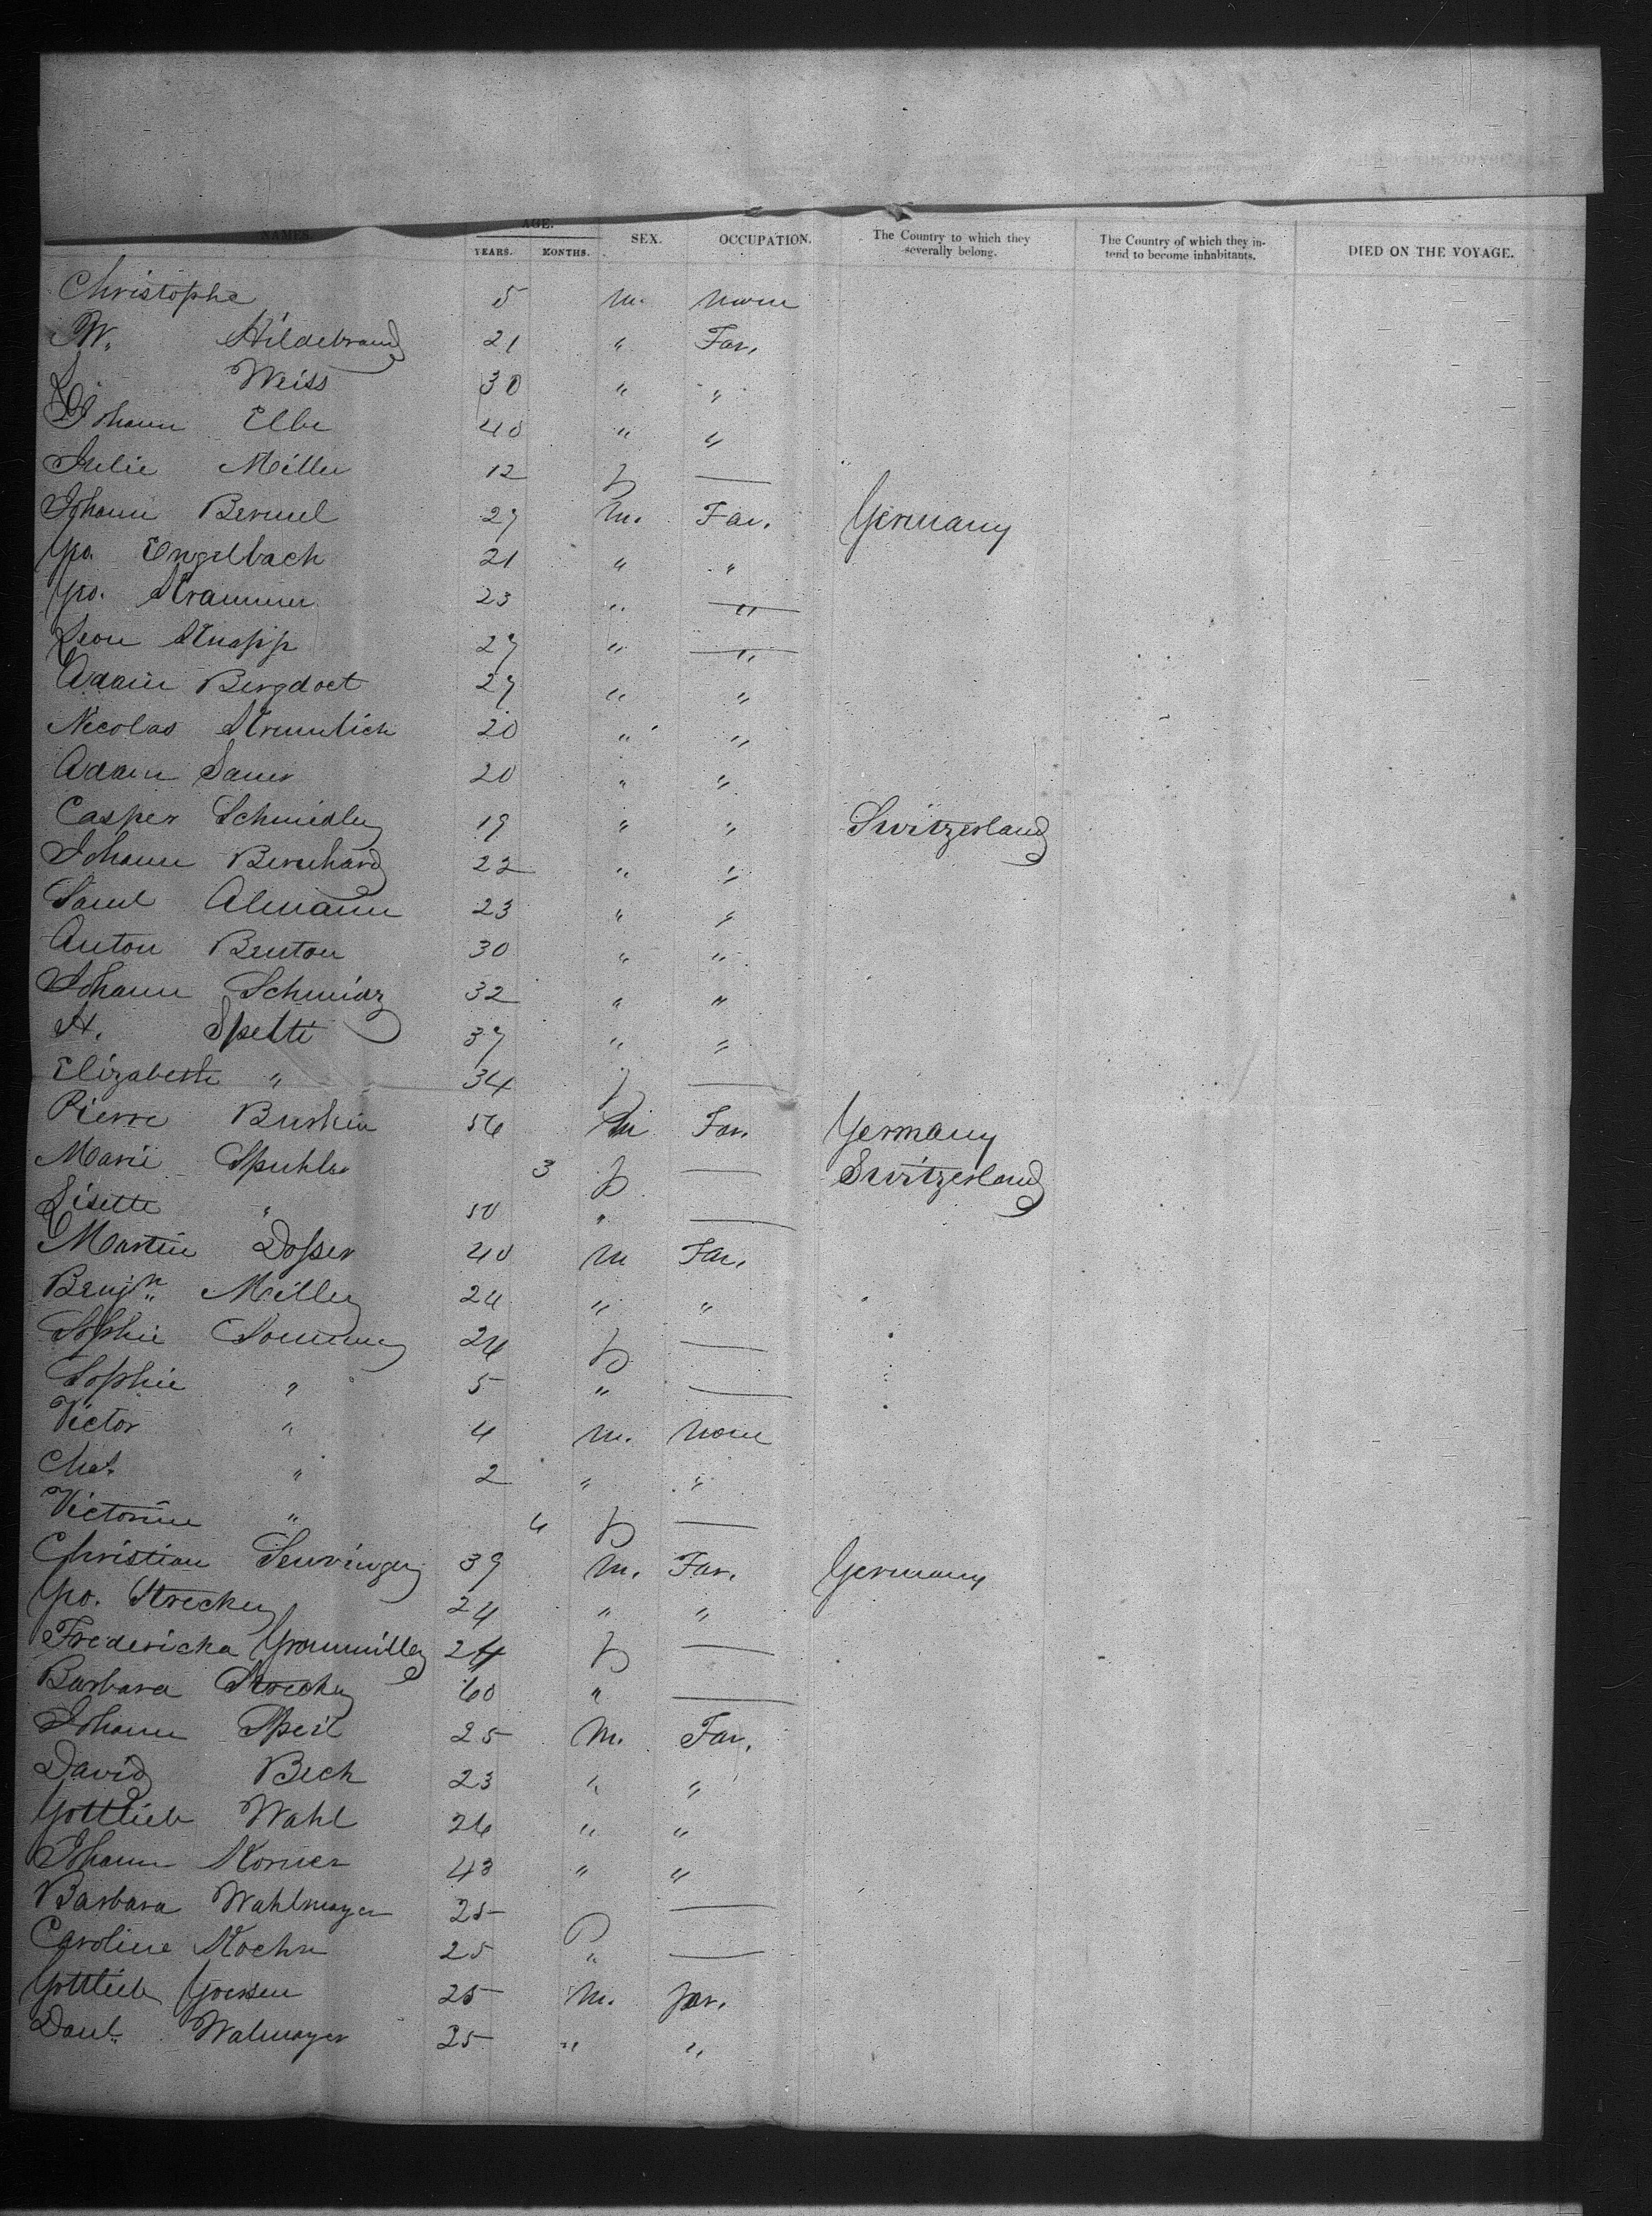 NAMES. AGE. SEX. OCCUPATION. The Country to which they severally belong. The Country of which they intend to become inhabitants. DIED ON THE VOYAGE.
YEARS. MONTHS.
Christophe 5 m. None
W. Hildebrand 21 " Far.
L. Weiss 30 " "
Johann Elbe 40 " "
Julie Miller 12 f —
Johann Bermel 27 m. Far. Germany
Go. Engelbach 21 " "
Go. Krammer 23 " "
Leon Knapp 27 " "
Adam Bergdoct 27 " "
Nicolas 20 " "
Adam Sauer 20 " "
Casper Schmidley 19 " " Switzerland
Johann Bernhard 22 " "
Saml Almann 23 " "
Anton Benton 30 " "
Johann Schmidz 32 " "
H. Spelti 37 " "
Elizabeth " 34 f —
Pierre 56 m Far. Germany
Marie Spuhler 3 f — Switzerland
Lisette " 50 " —
Martin Dosser 40 m Far.
Benjn Miller 24 " "
Sophie Sommer 24 f —
Sophie " 5 " —
Victor " 4 m. None
Chas. " 2 " "
Victorine " 4 f —
Christian 39 m. Far. Germany
Go. Strecker 24 " "
Fredericka Gronmiller 24 f —
Barbara Strecker 60 " —
Johann Speil 25 m. Far.
David Beck 23 " "
Gottlieb Wahl 26 " "
Johann Korner 43 " "
Barbara Wahlmayer 25 f —
Caroline Koehn 25 " —
Gottlieb 25 m. far.
Danl. Walmayer 25 " "